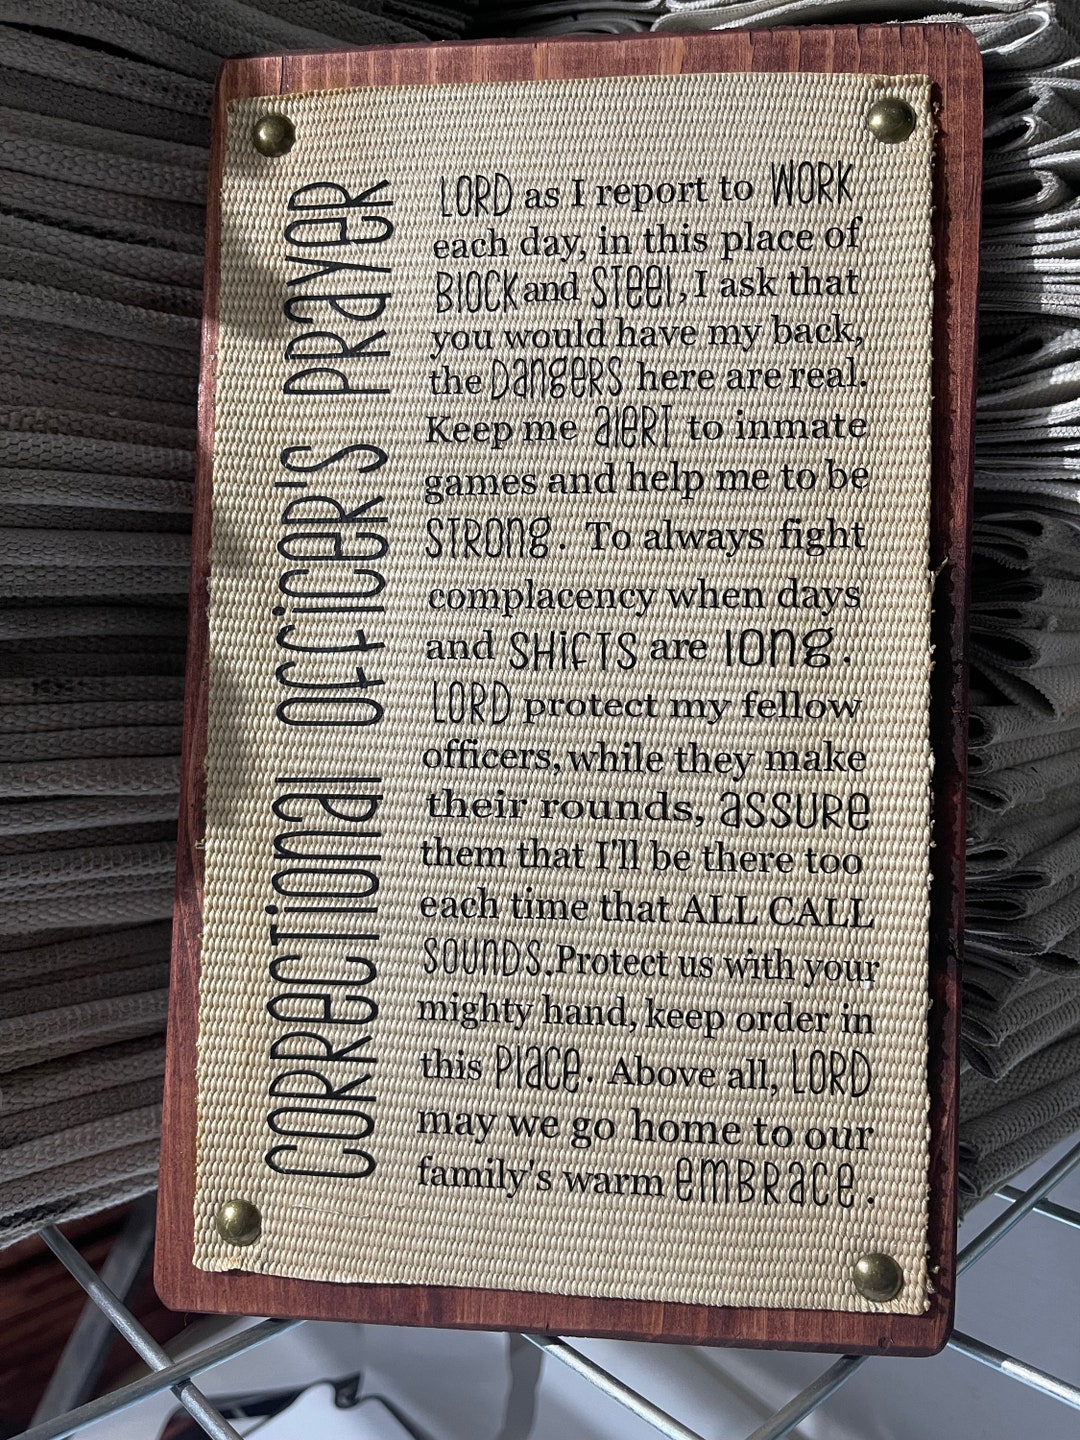 CORRECTIONAL OFFICER'S PRAYER
LORD as I report to WORK
each day, in this place of
BLOCK and STEEL, I ask that
you would have my back,
the DANGERS here are real.
Keep me ALERT to inmate
games and help me to be
STRONG. To always fight
complacency when days
and SHIFTS are LONG.
LORD protect my fellow
officers, while they make
their rounds, ASSURE
them that I'll be there too
each time that ALL CALL
SOUNDS. Protect us with your
mighty hand, keep order in
this PLACE. Above all, LORD
may we go home to our
family's warm EMBRACE.